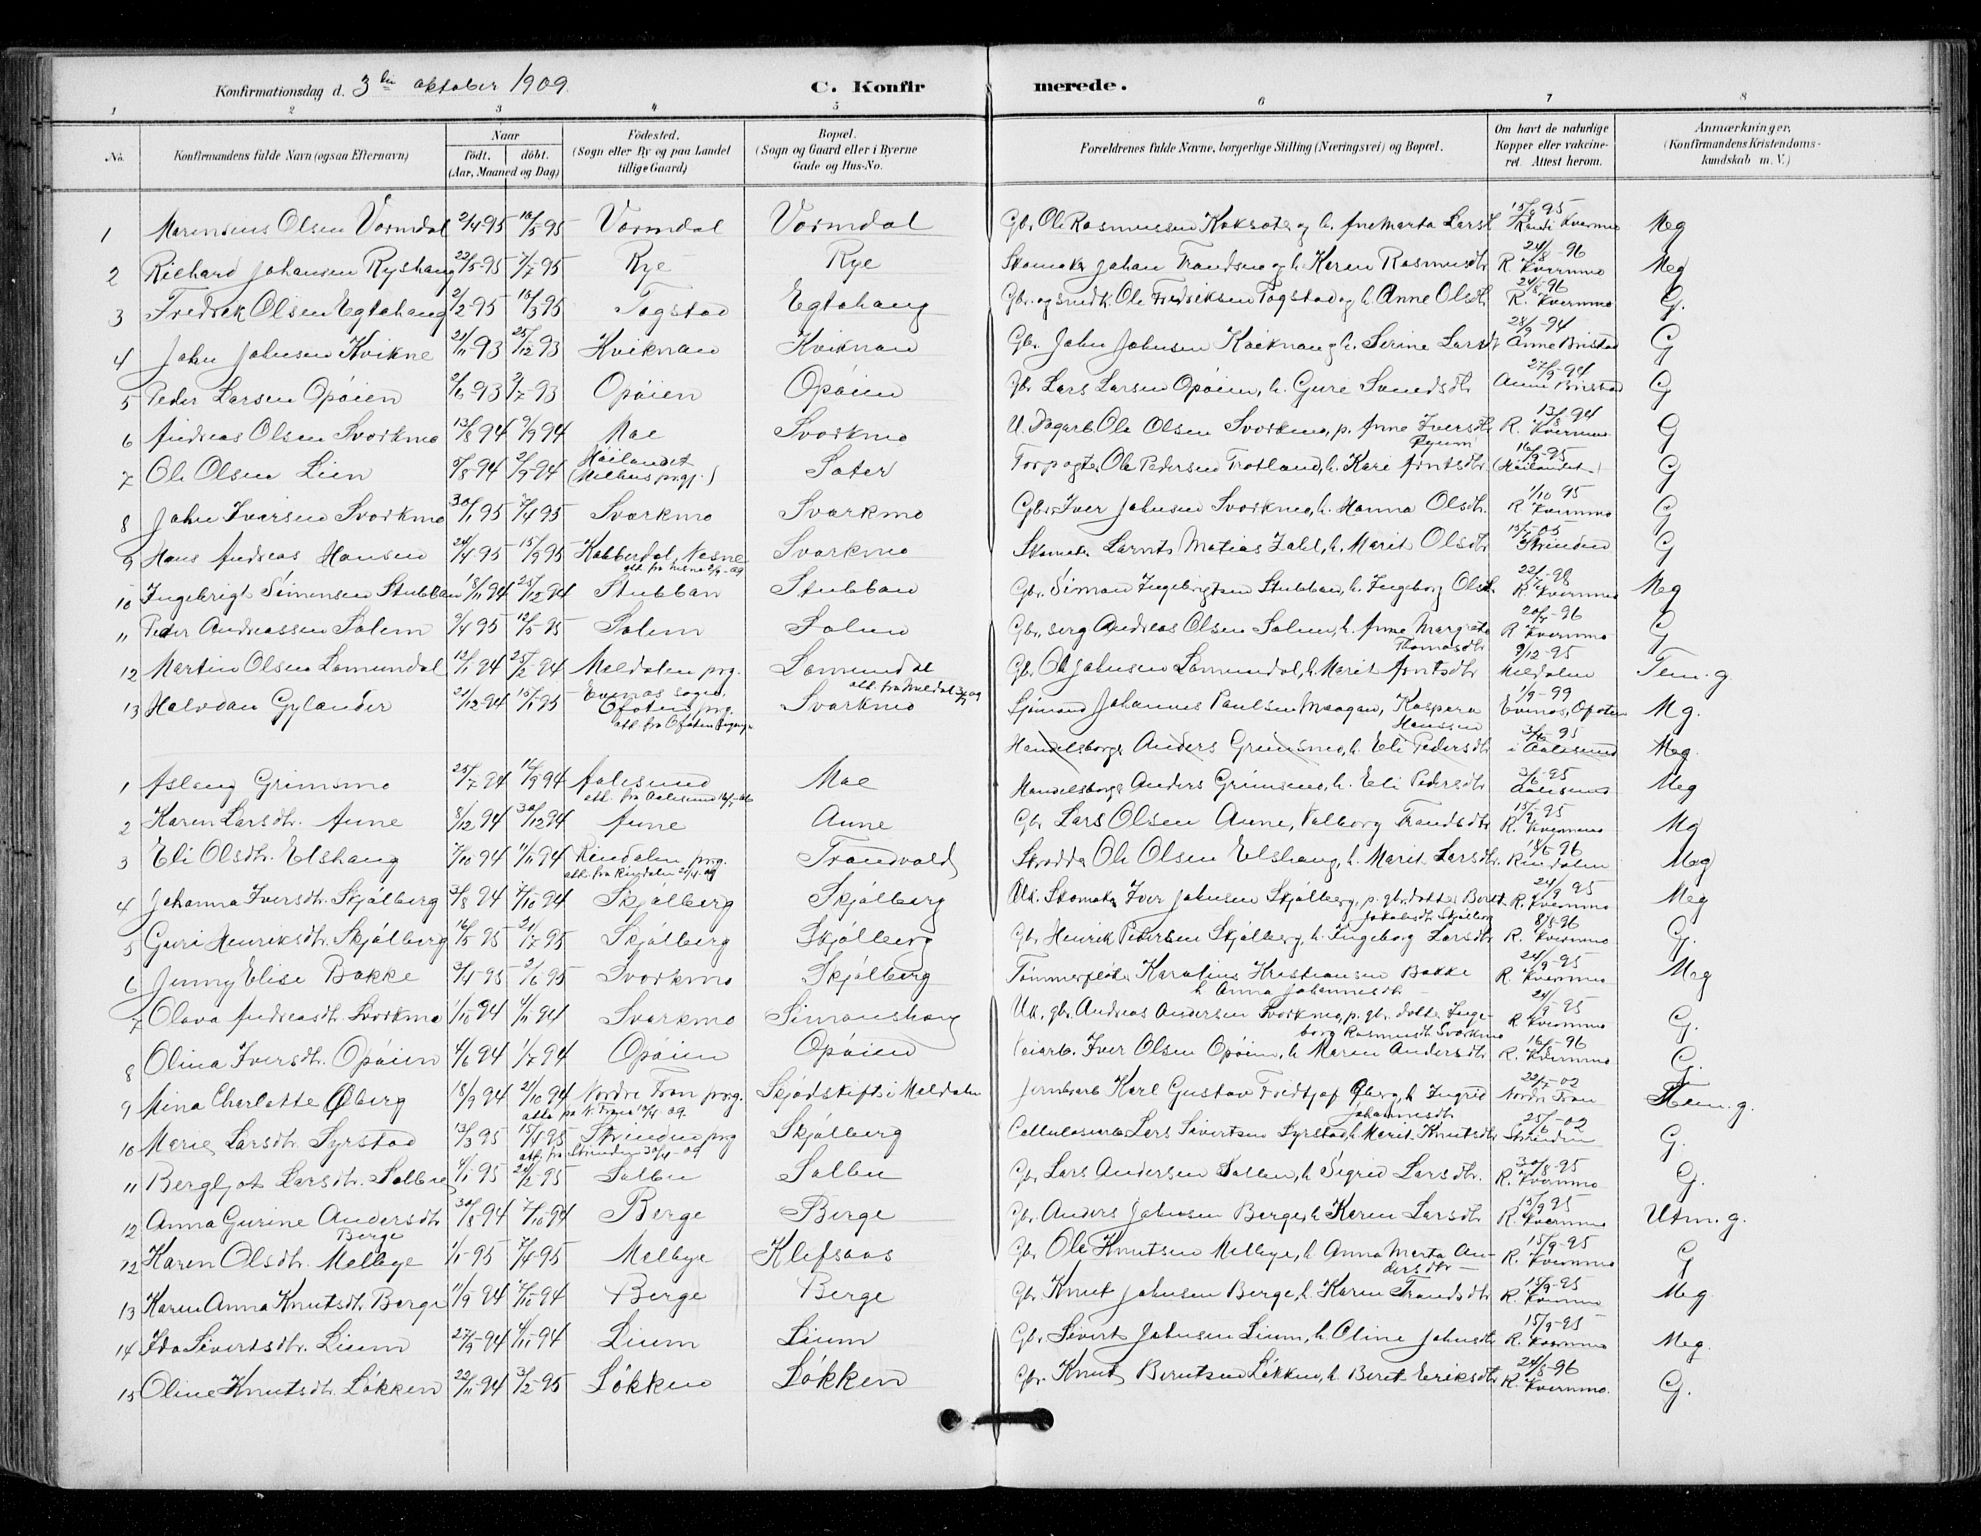 Konfirmationsdag d. 3die oktober 1909.
C. Konfirmerede.
1 2 3 4 5 6 7 8
No. Konfirmandens fulde Navn (ogsaa Efternavn) Naar födt. döbt. (Aar, Maaned og Dag) Födested. (Sogn eller By og paa Landet tillige Gaard) Bopæl. (Sogn og Gaard eller i Byerne Gade og Hus-No. Forældrenes fulde Navne, borgerlige Stilling (Næringsvei) og Bopæl. Om havt de naturlige Kopper eller vakcineret. Attest herom. Anmærkninger. (Konfirmandens Kristendomskundskab m. V.)
1 Marensius Olsen Vormdal 2/4-95 16/5-95 Vormdal Vormdal Gbr. Ole Rasmussen Koksæter og h. Ane Marta Larsd. 15/9 95 Meg
2 Richard Johansen Ryshaug 22/5-95 7/7-95 Rye Rye Skomaker Johan Trondsen og h. Karen Rasmusdtr 24/8-96 R. Kvernmo Meg
3 Fredrik Olsen Egtahaug 2/2-95 10/3 95 Togstad Egtahaug Gbr. og smed Ole Fredriksen Togstad og h. Anne Olsdtr. 24/8-96 R. Kvernmo G.
4 John Johnsen Kvikne 21/11-93 25/12 93 Kviknan Kviknan Gbr. John Johnsen Kviknan og h. Serine Larsdtr 28/9-94 Anne Bristad G
5 Peder Larsen Opøien 2/6-93 2/7-93 Opøien Opøien Gbr Lars Larsen Opøien, h. Gure Svendsdtr 27/9-94 Anne Bristad G
6 Andreas Olsen Svorkmo 13/8 94 9/9 94 Moe Svorkmo U. Dagarb. Ole Olsen Svorkmo, p. Anne Iversdtr Ryum 13/8-94 R. Kvernmo G
7 Ole Olsen Lien 5/8-94 2/9-94 Høilandet (Melhus prgj.) Sæter Forpagter Ole Pedersen Trotland, h. Kari Arntsdtr. 16/9-95 (Høilandet-) G
8 John Iversen Svorkmo 30/1 95 7/4 95 Svorkmo Svorkmo Gbr. Iver Johnsen Svorkmo, h. Hanna Olsdtr. 1/10 95 R Kvernmo G
9 Hans Andreas Hansen 24/4-95 15/9 95 Kobberdal, Nesne att. fra Nesne 2/9-09 Svorkmo Skomaker Larnts Matias Zahl, h. Marit Olsdtr 13/5-05 Strinden G
10 Ingebrigt Simensen Stubban 18/11 94 25/12 94 Stubban Stubban Gbr. Simon Ingebrigtsen Stubban, h. Ingeborg Olsd. 22/6-98 R. Kvernmo Meg
11 Peder Andreassen Solem 9/4 95 12/5 95 Solem Solem Gbr. Andreas Olsen Solem, h. Anne Margreta Thomasdtr 20/8-96 R Kvernmo G
12 Martin Olsen Lomundal 12/1 94 25/2-94 Meldalen prg. Lomundal att. fra Meldal Gbr. Ole Johnsen Lomundal, h. Marit Arntsdtr 9/12-95 Meldalen Tem. g
13 Halvdan Gylander 21/12-94 15/1 95 Evenæs sogn, Ofoten prg. att. fra Ofoten Svorkmo Sjömand Johannes Paulsen Maagan, Kaspara Hanssen 1/9-99 Evenæs, Ofoten Mg.
Handelsborger Anders Grimsmo, h. Eli Pedersdtr 3/6 95 i Aalesund Meg.
1 Aslaug Grimsmo 25/7 94 16/9 94 Aalesund att. fra Aalesund Moe Handelsborger Anders Grimsmo, h. Eli Pedersdtr 3/6-95 Aalesund Meg
2 Karen Larsdtr. Aune 8/12 94 30/12 94 Aune Aune Gbr Lars Olsen Aune, Valborg Trondsdtr 15/9-95 R. Kvernmo Mg
3 Eli Olsdtr. Elshaug 7/10 94 1/11 94 Rindalen prg. att. fra Rindalen 21/4-09 Trondvold Skrædder Ole Olsen Elshaug, h. Marit Larsdtr. 14/6 96 Rindalen Meg
4 Johanna Iversdtr. Skjølberg 31/8 94 7/10 94 Skjølberg Skjølberg Uk. Skomaker Iver Johnsen Skjølberg, p. gbr.datter Beret Jakobsdtr Skjølberg 24/9 95 R. Kvernmo Meg
5 Guri Henriksdtr. Skjølberg 16/5 95 21/7 95 Skjølberg Skjølberg Gbr. Henrik Pedersen Skjølberg, h. Ingeborg Larsdtr 8/8-96 R. Kvernmo G.
6 Jenny Elise Bakke 3/4 95 2/6 95 Svorkmo Skjølberg Tømmerfløter Karolius Kristiansen Bakke h Anna Johannesdtr 24/9-95 R Kvernmo Mg
7 Olava Andreasdtr. Svorkmo 1/10 94 4/11 94 Svorkmo Simonshaug Uk. gbr. Andreas Andersen Svorkmo, p. gbr. datter Ingeborg Rasmusdtr Svorkmo 24/9-95 R Kvernmo G.
8 Olina Iversdtr. Opøien 4/6 94 1/7 94 Opøien Opøien Veiarb. Iver Olsen Opøien, h Maren Andersdtr 16/8-96 R. Kvernmo G.
9 Mina Charlotte Øberg 18/9 94 21/10 94 Nordre Fron prg. att. fra N. Fron 12/4 09. Skjødskift i Meldalen Jernbarb Karl Gustav Fridtjof Øberg, h Ingrid Johannesdtr 22/7-02 Nordre Fron Tem. g.
10 Marie Larsdtr. Syrstad 13/3 95 15/4 95 Strinden prg att. fra Strinden 30/4-09 Skjølberg Cellulosearb. Lars Sivertsen Syrstad, h Marit Knutsdtr 25/6-02 Strinden G.
11 Bergljot Larsdtr. Solbu 4/1 95 24/2 95 Solbu Solbu Gbr Lars Andersen Solbu, h Sigrid Larsdtr. 30/8-95 R. Kvernmo G.
12 Anna Gurine Andersdtr Berge 30/8-94 7/10-94 Berge Berge Gbr. Anders Johnsen Berge, h Karen Larsdtr 15/9 95 R. Kvernmo Utm. g.
12 Karen Olsdtr. Melbye 1/1 95 7/4 95 Melbye Klefsaas Gbr. Ole Knutsen Melbye, h Anna Marta Andersdtr 15/9-95 R. Kvernmo G
13 Karen Anna Knutsdtr Berge 11/9 94 7/10-94 Berge Berge Gbr. Knut Johnsen Berge, h Karen Trondsdtr 15/9-95 R. Kvernmo Meg.
14 Ida Sivertsdtr. Lium 27/9-94 4/11-94 Lium Lium Gbr. Sivert Johnsen Lium, h Oline Johnsdtr 15/9-95 R. Kvernmo Meg.
15 Oline Knutsdtr. Løkken 22/11-94 3/2-95 Løkken Løkken Gbr. Knut Berntsen Løkken, h Beret Eriksdtr 24/8-96 R. Kvernmo. G.